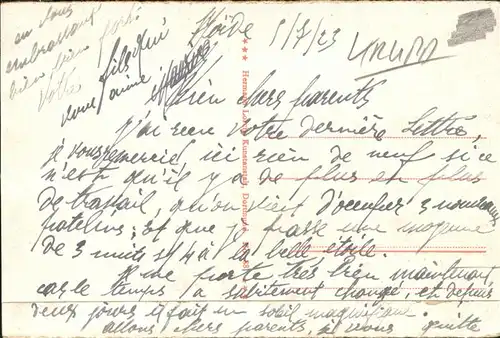 le 1/7/23
Mes bien chers parents
J'ai reçu votre dernière lettre,
je vous remercie, ici rien de neuf si ce
n'est qu'il y a de plus en plus
de travail, qu'on vient d'occuper 3 nouveaux
patelins, et que je passe une moyenne
de 3 nuits s/4 à la belle étoile.
Il me porte très bien maintenant
car le temps a subitement changé, et depuis
deux jours il fait un soleil magnifique.
allons chers parents, je vous quitte
en vous
embrassant
bien bien fort.
Votre
fils qui
vous aime
Maurice
*** Hermann Lorch, Kunstanstalt, Dortmund